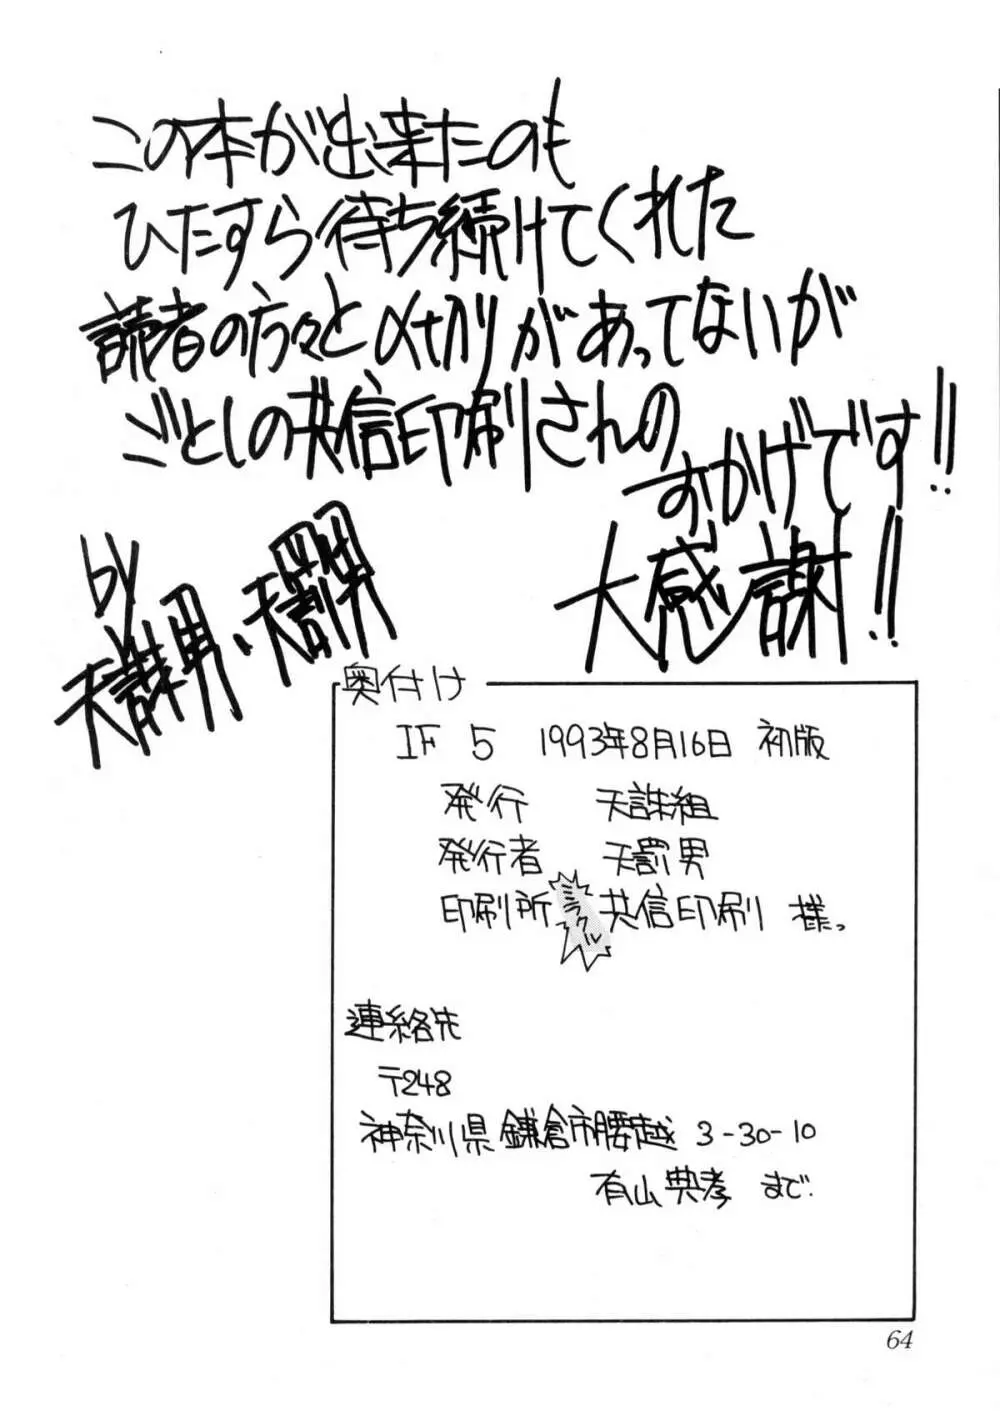 この本が出来たのも
ひたすら待ち続けてくれた
読者の方々と〆切りがあってないが
ごとしの共信印刷さんの
おかげです!!
大感謝!!
by
天誅男、天罰男
奥付け
IF 5 1993年8月16日 初版
発行 天誅組
発行者 天罰男
印刷所 ミラクル 共信印刷 様。
連絡先
〒248
神奈川県鎌倉市腰越 3-30-10
有山典孝 まで.
64